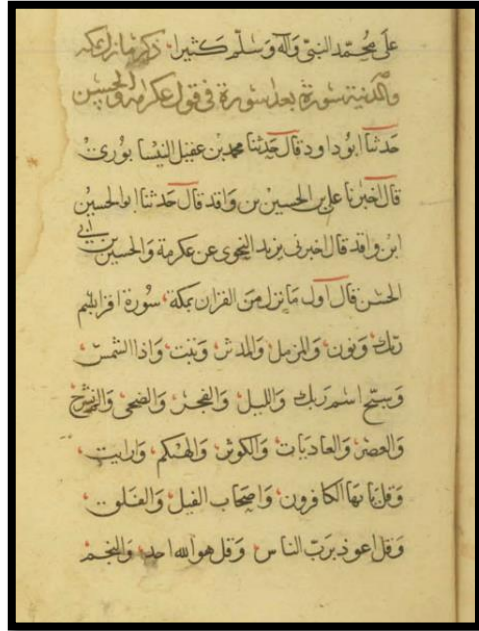 على محمد النبي وآله وسلم كثيرا ذكر ما نزل بمكة
والمدينة سورة بعد سورة في قول عكرمة والحسين
حدثنا ابو داود قال حدثنا محمد بن عقيل النيسابوري
قال اخبرنا علي بن الحسين بن واقد قال حدثنا ابو الحسين
ابن واقد قال اخبرني يزيد النحوي عن عكرمة والحسين بن أبي
الحسن قال اول ما نزل من القران بمكة سورة اقرا باسم
ربك ونون والمزمل والمدثر وتبت واذا الشمس
وسبح اسم ربك والليل والفجر والضحى والم نشرح
والعصر والعاديات والكوثر والهكم وارايت
وقل يا يها الكافرون واصحاب الفيل والفلق
وقل اعوذ برب الناس وقل هو الله احد والنجم